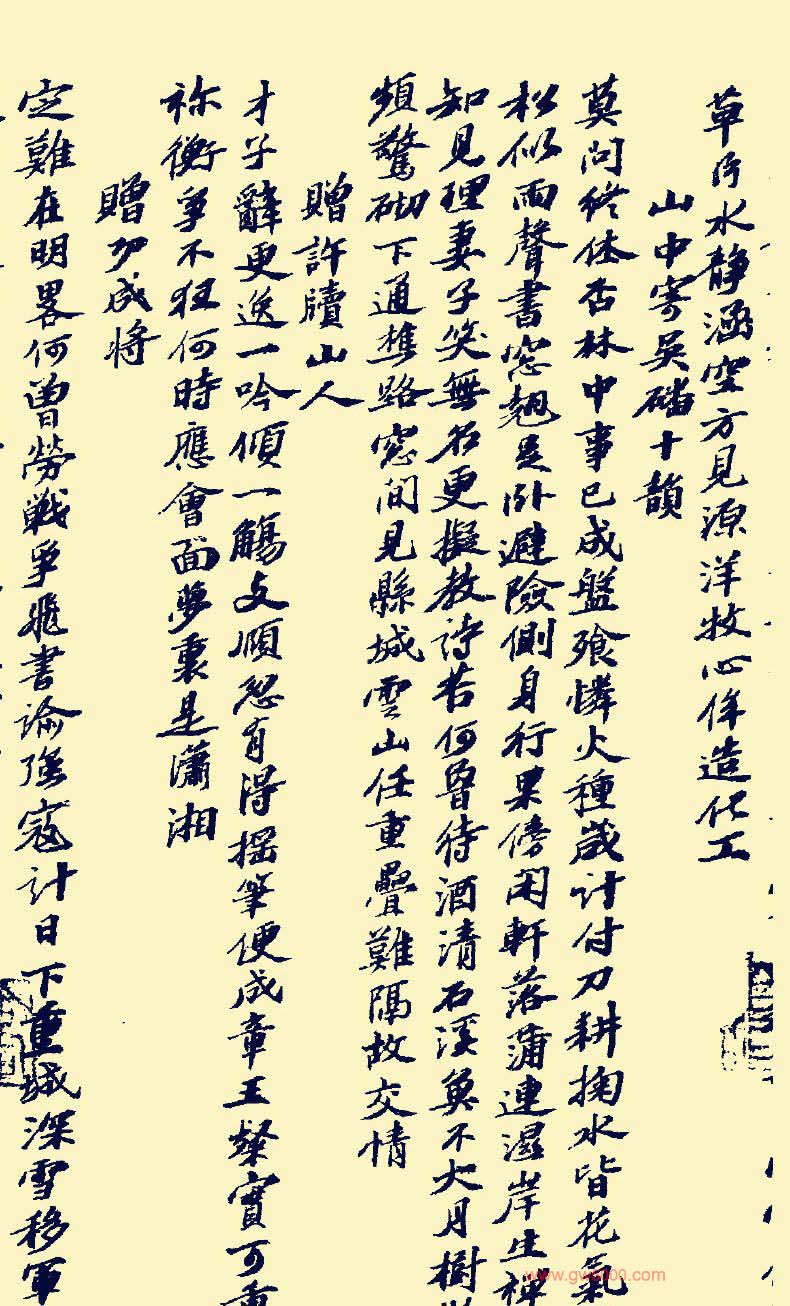 草際水靜涵空方見源洋牧心侔造化工
山中寄吳磻十韻
莫問終休否林中事已成盤飱憐火種歲計付刀耕掬水皆花氣
松似雨聲書窓翹足卧避險側身行果傍閑軒落蒲連濕岸生禅
知見理妻子笑無名更擬教詩苦何曾待酒清石溪魚不大月樹
頻驚砌下通樵路窓間見縣城雲山任重疊難隔故交情
贈許牘山人
才子辭更逸一吟傾一觴支順忽有得摇筆便成章王粲實可重
祢衡爭不狂何時應會面夢裏是瀟湘
贈功成将
定難在明畧何曾勞戰爭飛書諭强寇計日下重城深雪移軍
www.gw8000.com